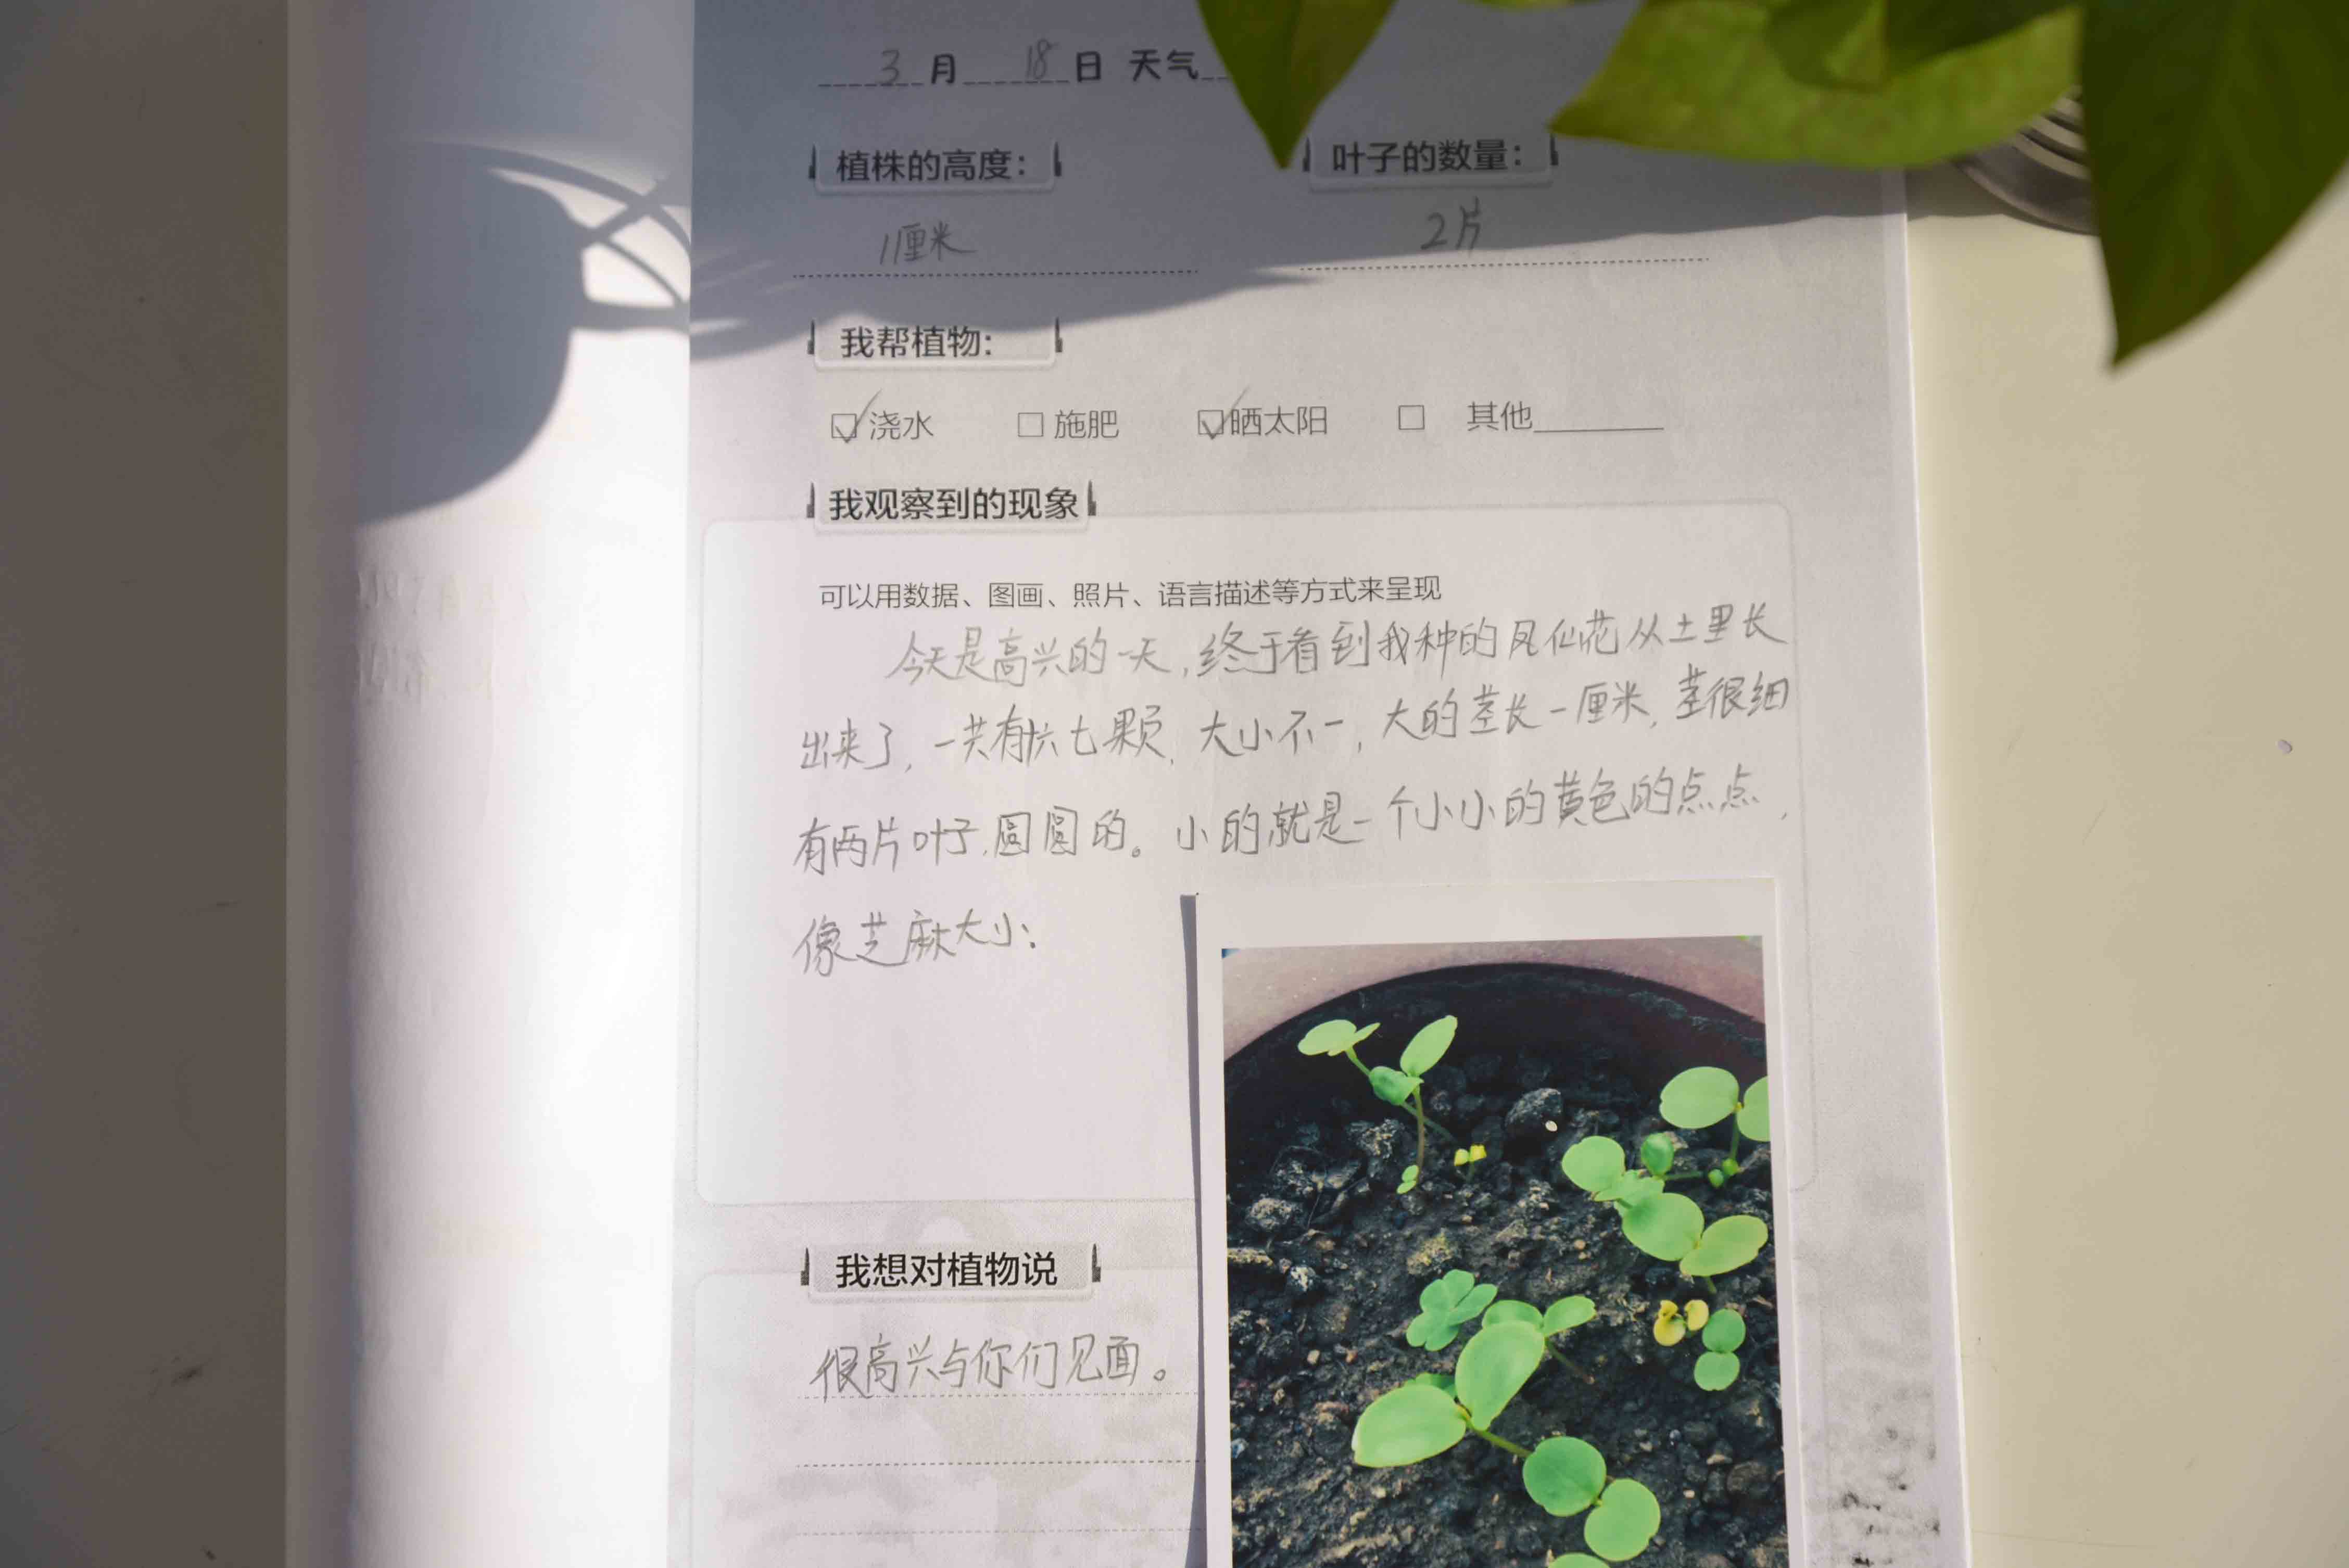 3月18日 天气
植株的高度： 叶子的数量：
1厘米 2片
我帮植物:
☑浇水 □施肥 ☑晒太阳 □ 其他
我观察到的现象
可以用数据、图画、照片、语言描述等方式来呈现
今天是高兴的一天,终于看到我种的凤仙花从土里长
出来了,一共有六七颗,大小不一,大的茎长一厘米,茎很细
有两片叶子,圆圆的。小的就是一个小小的黄色的点点,
像芝麻大小:
我想对植物说
很高兴与你们见面。